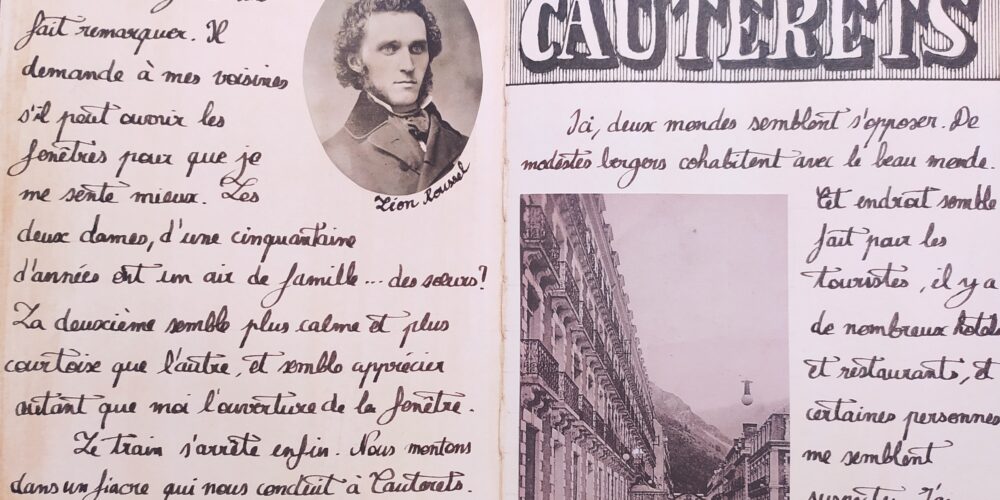 fait remarquer. Il
demande à mes voisines
s'il peut ouvrir les
fenêtres pour que je
me sente mieux. Les
deux dames, d'une cinquantaine
d'années ont un air de famille... des sœurs?
La deuxième semble plus calme et plus
courtoise que l'autre, et semble apprécier
autant que moi l'ouverture de la fenêtre.
Le train s'arrête enfin. Nous montons
dans un fiacre qui nous conduit à Cauterets.
Léon Roussel
CAUTERETS
Ici, deux mondes semblent s'opposer. De
modestes bergers cohabitent avec le beau monde.
Cet endroit semble
fait pour les
touristes, il y a
de nombreux hotels
et restaurants, et
certaines personnes
me semblent